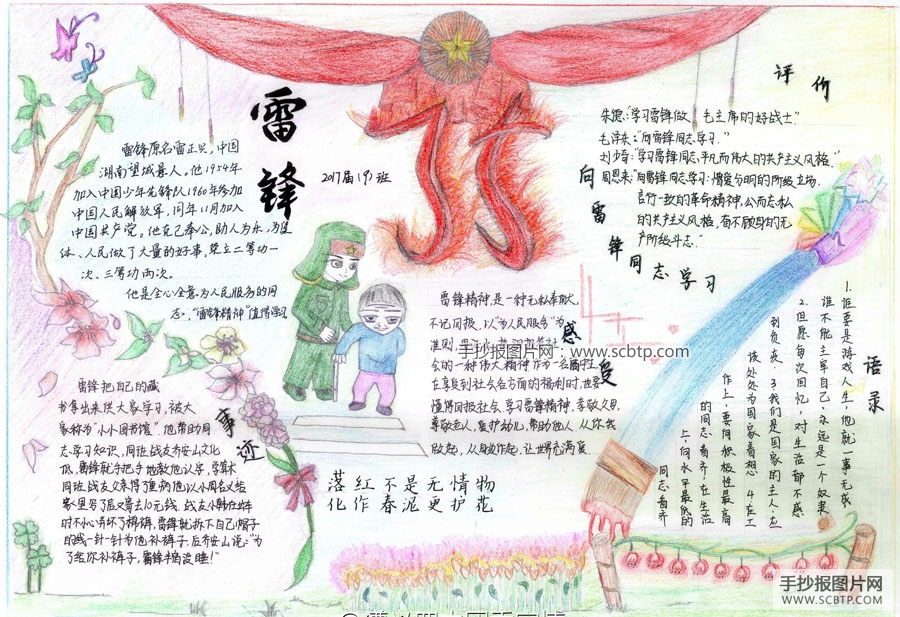 雷锋
2017届191班
雷锋原名雷正兴,中国
湖南望城县人。他1954年
加入中国少年先锋队1960年参加
中国人民解放军,同年11月加入
中国共产党,他克己奉公,助人为乐,为集
体、人民做了大量的好事,荣立二等功一
次、三等功两次。
他是全心全意为人民服务的同
志,"雷锋精神"值得学习
评价
朱德:"学习雷锋做 毛主席的好战士"
毛泽东:"向雷锋同志学习."
刘少奇:"学习雷锋同志,平凡而伟大的共产主义风格."
周恩来:"向雷锋同志学习:憎爱分明的阶级立场,
言行一致的革命精神,公而忘私
的共产主义风格,奋不顾身的无
产阶级斗志."
向雷锋同志学习
雷锋精神,是一种无私奉献,
不记回报,以"为人民服务"为
会的一种伟大精神作为一名
在享受到社会各方面的福利时,也要
懂得回报社会.学习雷锋精神,孝敬父母,
尊敬老人,爱护幼儿,帮助他人,从你我
做起,从身边作起,让世界充满爱
感受
手抄报图片网:www.scbtp.com
语录
1.谁要是游戏人生,他就一事无成
谁不能主宰自己,永远是一个奴隶
2.但愿每次回忆,对生活都不感
到负疚 3.我们是国家的主人,应
该处处为国家着想 4.在工
作上,要向积极性最高
的同志看齐,在生活
上,向水平最低的
同志看齐
事迹
雷锋把自己的藏
书拿出来供大家学习,被大
家称为"小小图书馆".他帮助同
志学习知识,同班战友乔安山文化
低,雷锋就手把手地教他认字,学算术
同班战友父亲得了重病,他以小周名义给
家里写了信又寄去10元钱.战友小韩在
时不小心弄坏了棉裤,雷锋就拆下自己帽子
的线一针一针为他补裤子,后乔安山说:"为
了给你补裤子,雷锋半宿没睡!"
落红不是无情物
化作春泥更护花
手抄报图片网
WWW.SCBTP.COM